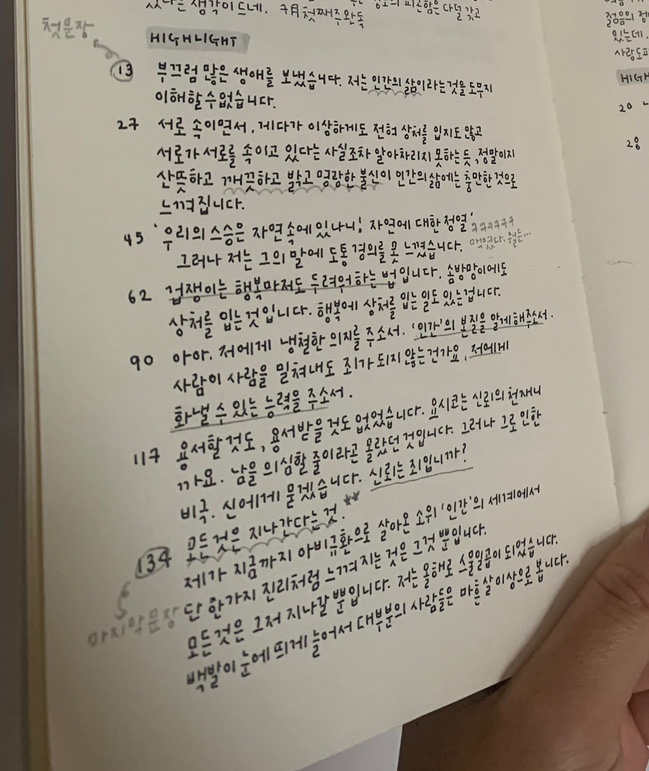 있다는 생각이 드네. 7月 첫째주 완독
첫문장
HIGHLIGHT
13 부끄럼 많은 생애를 보냈습니다. 저는 인간의 삶이라는것을 도무지
이해할 수 없습니다.
27 서로 속이면서, 게다가 이상하게도 전혀 상처를 입지도 않고
서로가 서로를 속이고 있다는 사실조차 알아차리지 못하는 듯, 정말이지
산뜻하고 깨끗하고 밝고 명랑한 불신이 인간의 삶에는 충만한 것으로
느껴집니다.
45 '우리의 스승은 자연속에 있나니! 자연에 대한 정열' ㅋㅋㅋㅋㅋㅋ
그러나 저는 그의 말에 도통 경의를 못 느꼈습니다.
62 겁쟁이는 행복마저도 두려워하는 법입니다. 솜방망이에도
상처를 입는 것입니다. 행복에 상처를 입는 일도 있는겁니다.
90 아아, 저에게 냉철한 의지를 주소서. '인간'의 본질을 알게해주소서.
사람이 사람을 밀쳐내도 죄가 되지 않는건가요, 저에게
화낼 수 있는 능력을 주소서.
117 용서할 것도, 용서받을 것도 없었습니다. 요시코는 신뢰의 천재니
까요. 남을 의심할 줄이라곤 몰랐던 것입니다. 그러나 그로 인한
비극. 신에게 묻겠습니다. 신뢰는 죄입니까?
134 모든것은 지나간다는 것.
제가 지금까지 아비규환으로 살아온 소위 '인간'의 세계에서
단 한가지 진리처럼 느껴지는 것은 그것 뿐입니다.
마지막문장
모든것은 그저 지나갈 뿐입니다. 저는 올해로 스물일곱이 되었습니다.
백발이 눈에 띄게 늘어서 대부분의 사람들은 마흔살 이상으로 봅니다.
젊음의
있는데.
사람도
HIGH
20
28